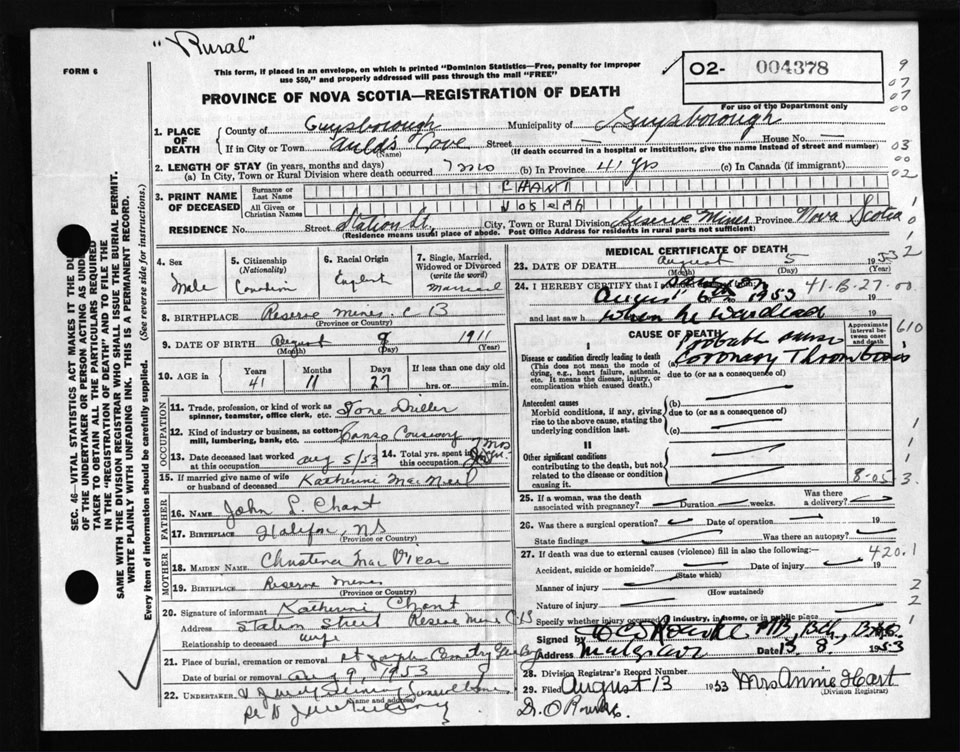 "Rural"
FORM 6
This form, if placed in an envelope, on which is printed "Dominion Statistics—Free, penalty for improper
use $50," and properly addressed will pass through the mail "FREE"
02- 004378
For use of the Department only
PROVINCE OF NOVA SCOTIA—REGISTRATION OF DEATH
1. PLACE OF DEATH
County of Guysborough Municipality of Guysborough
If in City or Town Auld's Cove Street House No.
(Name) (If death occurred in a hospital or institution, give the name instead of street and number)
2. LENGTH OF STAY (in years, months and days)
(a) In City, Town or Rural Division where death occurred 7 mos (b) In Province 41 yrs (c) In Canada (if immigrant)
3. PRINT NAME OF DECEASED
Surname or Last Name CHANT
All Given or Christian Names Joseph
RESIDENCE No. Street Station St. City, Town or Rural Division Reserve Mines Province Nova Scotia
(Residence means usual place of abode. Post Office Address for residents in rural parts not sufficient)
4. Sex Male
5. Citizenship (Nationality) Canadian
6. Racial Origin English
7. Single, Married, Widowed or Divorced (write the word) Married
8. BIRTHPLACE Reserve Mines. C B
(Province or Country)
9. DATE OF BIRTH August 9 1911
(Month) (Day) (Year)
10. AGE in Years 41 Months 11 Days 27 If less than one day old hrs. or min.
OCCUPATION
11. Trade, profession, or kind of work as spinner, teamster, office clerk, etc. Stone Driller
12. Kind of industry or business, as cotton mill, lumbering, bank, etc. Canso Causeway
13. Date deceased last worked at this occupation Aug 5/53
14. Total yrs. spent in this occupation 7 mos
15. If married give name of wife or husband of deceased Katherine MacNeil
FATHER
16. NAME John L. Chant
17. BIRTHPLACE Halifax, NS
(Province or Country)
MOTHER
18. MAIDEN NAME Christena MacVicar
19. BIRTHPLACE Reserve Mines
(Province or Country)
20. Signature of informant Katherine Chant
Address Station Street Reserve Mines C B
Relationship to deceased wife
21. Place of burial, cremation or removal St Joseph Cemetry
Date of burial or removal Aug 9, 1953
22. UNDERTAKER
(Name and address)
MEDICAL CERTIFICATE OF DEATH
23. DATE OF DEATH August 5 1953
(Month) (Day) (Year)
24. I HEREBY CERTIFY that I
August 6th 1953 41-B-27-00
and last saw h when he was dead 19
CAUSE OF DEATH
Approximate interval between onset and death
I
Disease or condition directly leading to death
(This does not mean the mode of dying, e.g., heart failure, asthenia, etc. It means the disease, injury, or complication which caused death.)
(a) Probable cause Coronary Thrombosis
due to (or as a consequence of)
Antecedent causes
Morbid conditions, if any, giving rise to the above cause, stating the underlying condition last.
(b)
due to (or as a consequence of)
(c)
II
Other significant conditions
contributing to the death, but not related to the disease or condition causing it.
8-05
25. If a woman, was the death associated with pregnancy? Duration weeks. Was there a delivery?
26. Was there a surgical operation? Date of operation 19
State findings Was there an autopsy?
27. If death was due to external causes (violence) fill in also the following:— 420.1
Accident, suicide or homicide? Date of injury 19
(State which)
Manner of injury
(How sustained)
Nature of injury
Specify whether injury occurred in industry, in home, or in public place
Signed by
Address Mulgrave Date 13. 8. 1953
28. Division Registrar's Record Number
29. Filed August 13 1953 Mrs Annie Hart
(Division Registrar)
Dr. O'Rourke
SEC. 46—VITAL STATISTICS ACT MAKES IT THE
OF THE UNDERTAKER OR PERSON ACTING AS
TAKER TO OBTAIN ALL THE PARTICULARS REQUIRED
IN THE "REGISTRATION OF DEATH" AND TO FILE THE
SAME WITH THE DIVISION REGISTRAR WHO SHALL ISSUE THE BURIAL PERMIT.
WRITE PLAINLY WITH UNFADING INK. THIS IS A PERMANENT RECORD.
Every item of information should be carefully supplied. (See reverse side for instructions.)
9
07
07
00
03
00
02
1
0
1
0
2
610
1
1
3
2
2
1